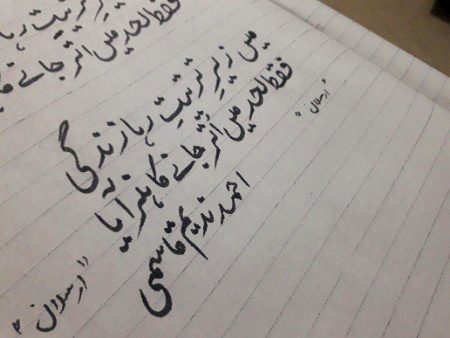 تربیت رہا
لحد میں اتر جانے کا
میں زیرِ تربیت رہا زندگی
فقط لحد میں اُتر جانے کا ہنر آیا
احمد ندیم قاسمی
"ارسلان"
"ارسلان"